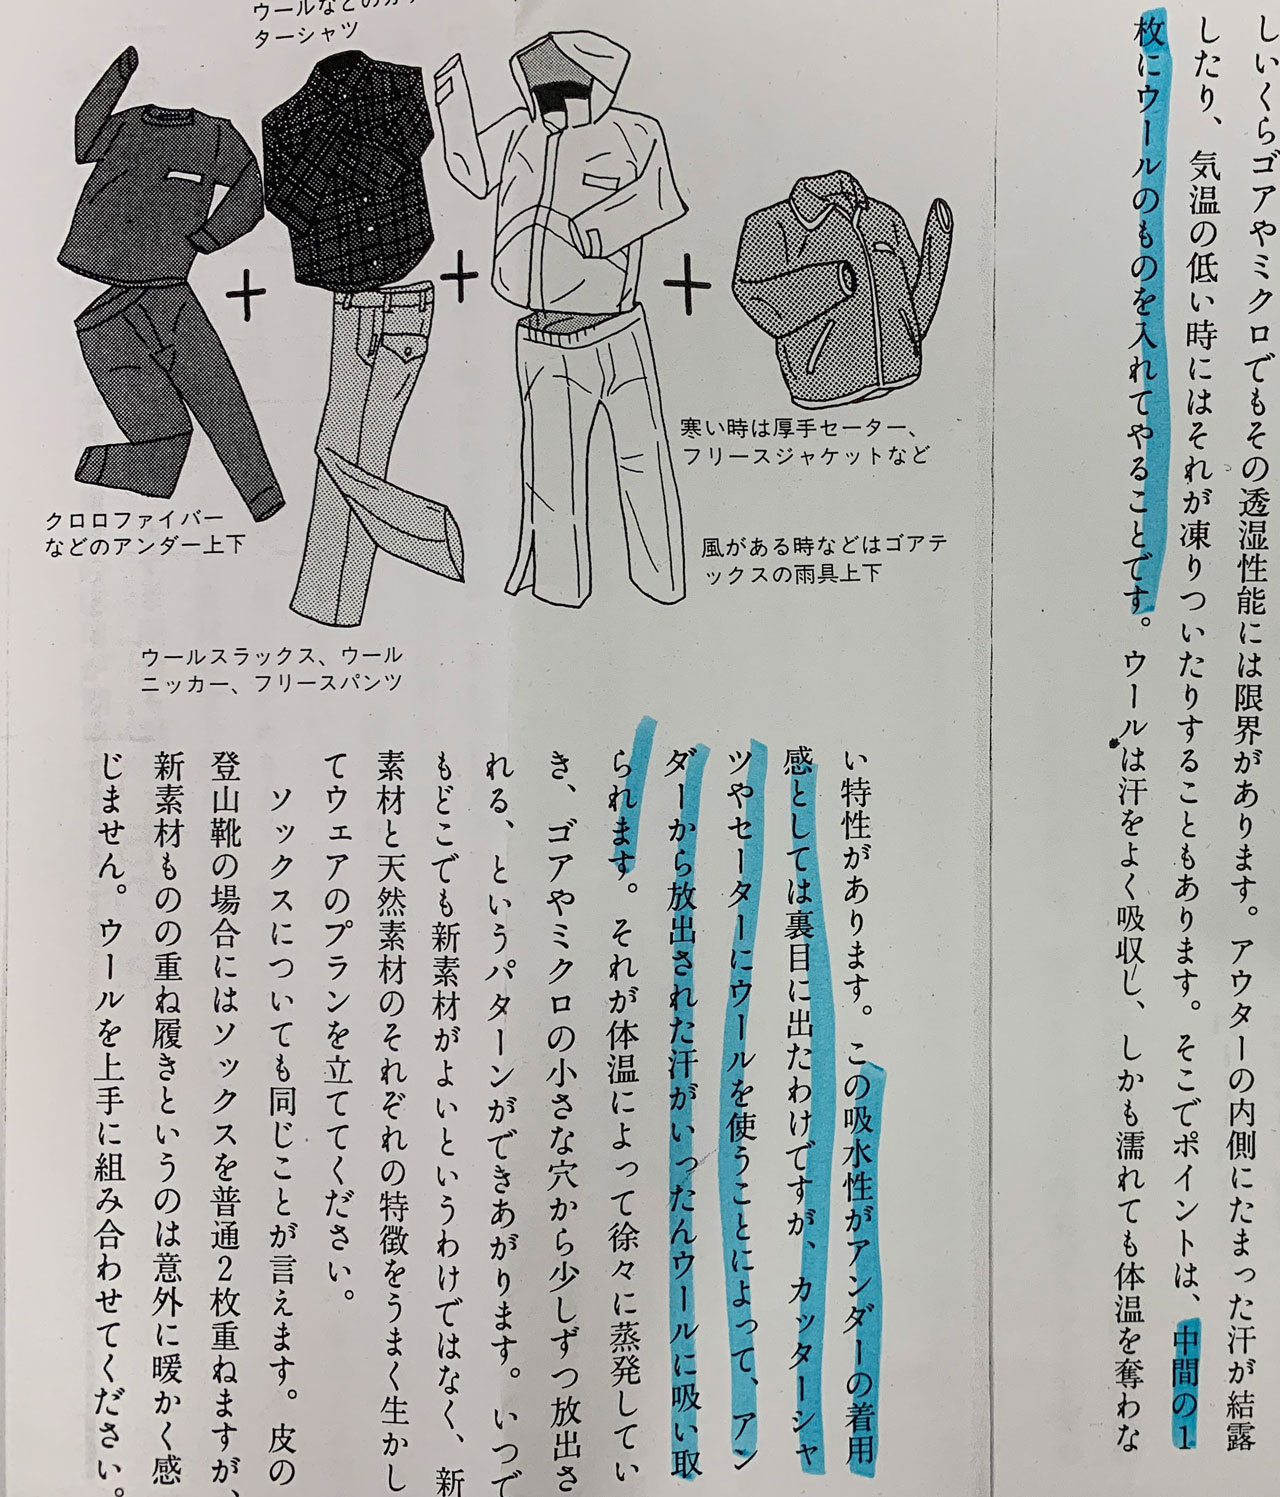 しいくらゴアやミクロでもその透湿性能には限界があります。アウターの内側にたまった汗が結露
したり、気温の低い時にはそれが凍りついたりすることもあります。そこでポイントは、中間の1
枚にウールのものを入れてやることです。ウールは汗をよく吸収し、しかも濡れても体温を奪わな
ウールなどのカッ
ターシャツ
クロロファイバー
などのアンダー上下
寒い時は厚手セーター、
フリースジャケットなど
風がある時などはゴアテ
ックスの雨具上下
ウールスラックス、ウール
ニッカー、フリースパンツ
い特性があります。この吸水性がアンダーの着用
感としては裏目に出たわけですが、カッターシャ
ツやセーターにウールを使うことによって、アン
ダーから放出された汗がいったんウールに吸い取
られます。それが体温によって徐々に蒸発してい
き、ゴアやミクロの小さな穴から少しずつ放出さ
れる、というパターンができあがります。いつで
もどこでも新素材がよいというわけではなく、新
素材と天然素材のそれぞれの特徴をうまく生かし
てウェアのプランを立ててください。
ソックスについても同じことが言えます。皮の
登山靴の場合にはソックスを普通2枚重ねますが、
新素材ものの重ね履きというのは意外に暖かく感
じません。ウールを上手に組み合わせてください。